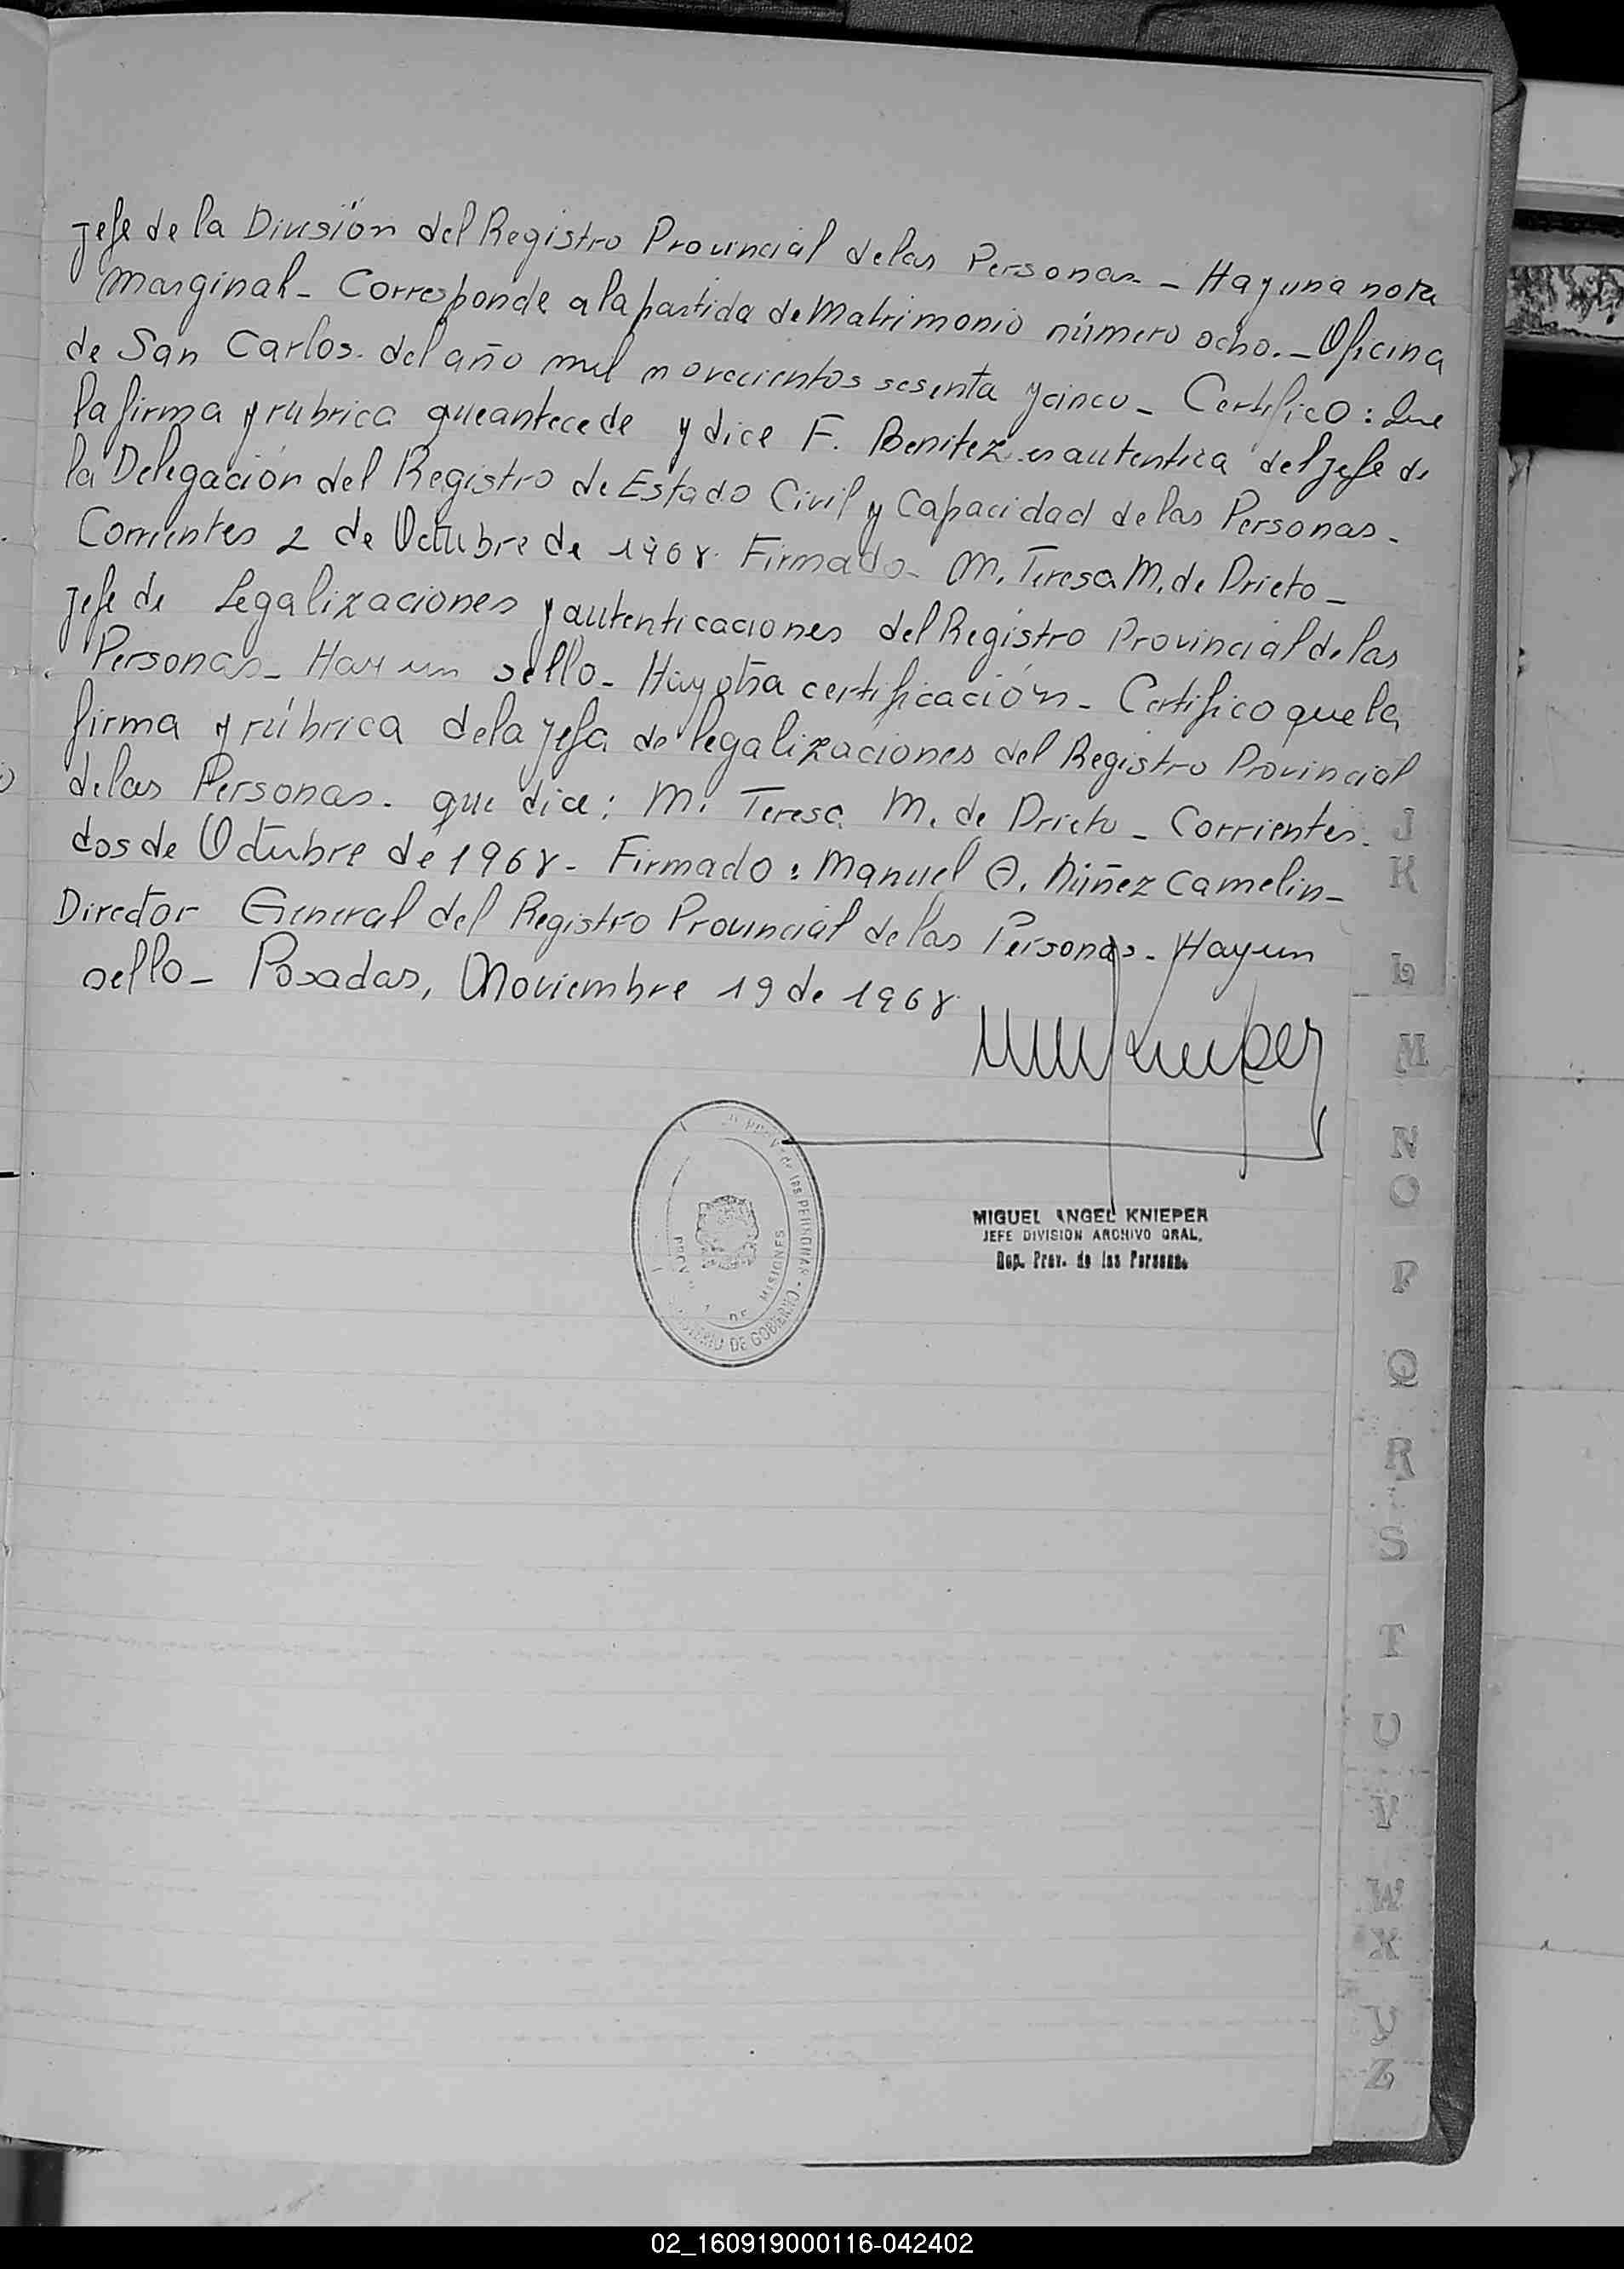 Jefe de la División del Registro Provincial de las Personas - Hay una nota
marginal - Corresponde a la partida de Matrimonio número ocho. - Oficina
de San Carlos. del año mil novecientos sesenta y cinco - Certifico: Que
la firma y rubrica que antecede y dice F. Benitez es autentica del Jefe de
la Delegación del Registro de Estado Civil y Capacidad de las Personas -
Corrientes 2 de Octubre de 1968. Firmado - M. Teresa M. de Prieto -
Jefe de Legalizaciones y autenticaciones del Registro Provincial de las
Personas - Hay un sello - Hay otra certificación - Certifico que la
firma y rúbrica de la Jefa de legalizaciones del Registro Provincial
de las Personas. que dice: M. Teresa M. de Prieto - Corrientes.
dos de Octubre de 1968 - Firmado: Manuel A. Núñez Camelin -
Director General del Registro Provincial de las Personas - Hay un
sello - Posadas, Noviembre 19 de 1968.
de las PERSONAS - 
DE GOBIERNO
DE MISIONES
MIGUEL ANGEL KNIEPER
JEFE DIVISION ARCHIVO GRAL.
Rep. Prov. de las Personas
J
K
L
M
N
O
P
Q
R
S
T
U
V
W
X
Y
Z
02_160919000116-042402